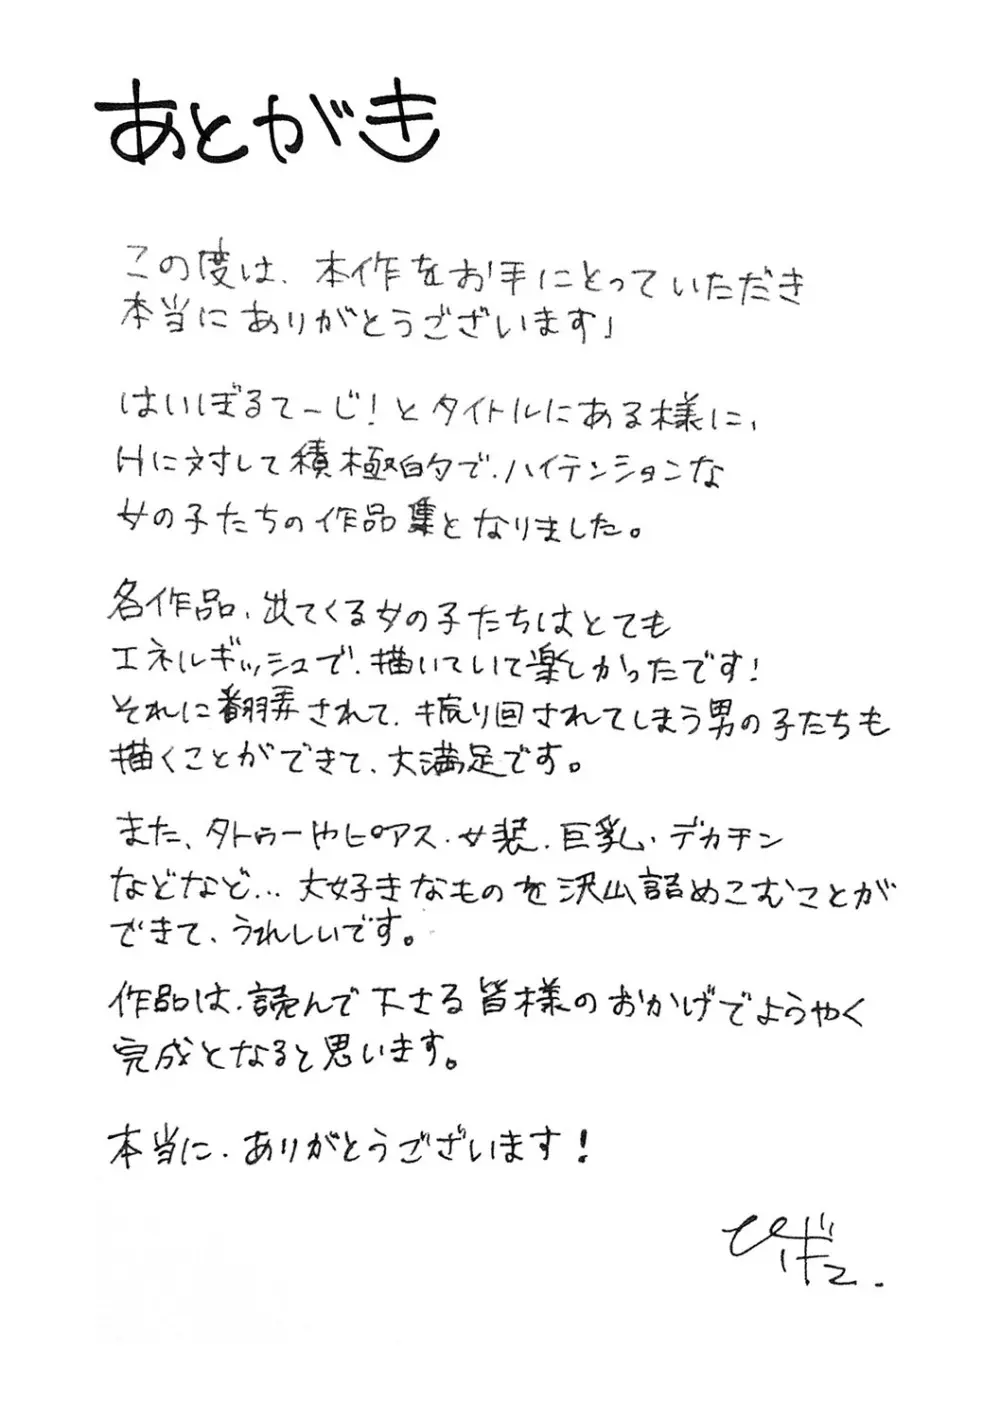 あとがき
この度は、本作をお手にとっていただき
本当にありがとうございます」
はいぼるてーじ!とタイトルにある様に、
Hに対して積極的で、ハイテンションな
女の子たちの作品集となりました。
各作品、出てくる女の子たちはとても
エネルギッシュで、描いていて楽しかったです!
それに翻弄されて、振り回されてしまう男の子たちも
描くことができて、大満足です。
また、タトゥーやピアス・女装・巨乳・デカチン
などなど… 大好きなものを沢山詰めこむことが
できて、うれしいです。
作品は、読んで下さる皆様のおかげでようやく
完成となると思います。
本当に、ありがとうございます!